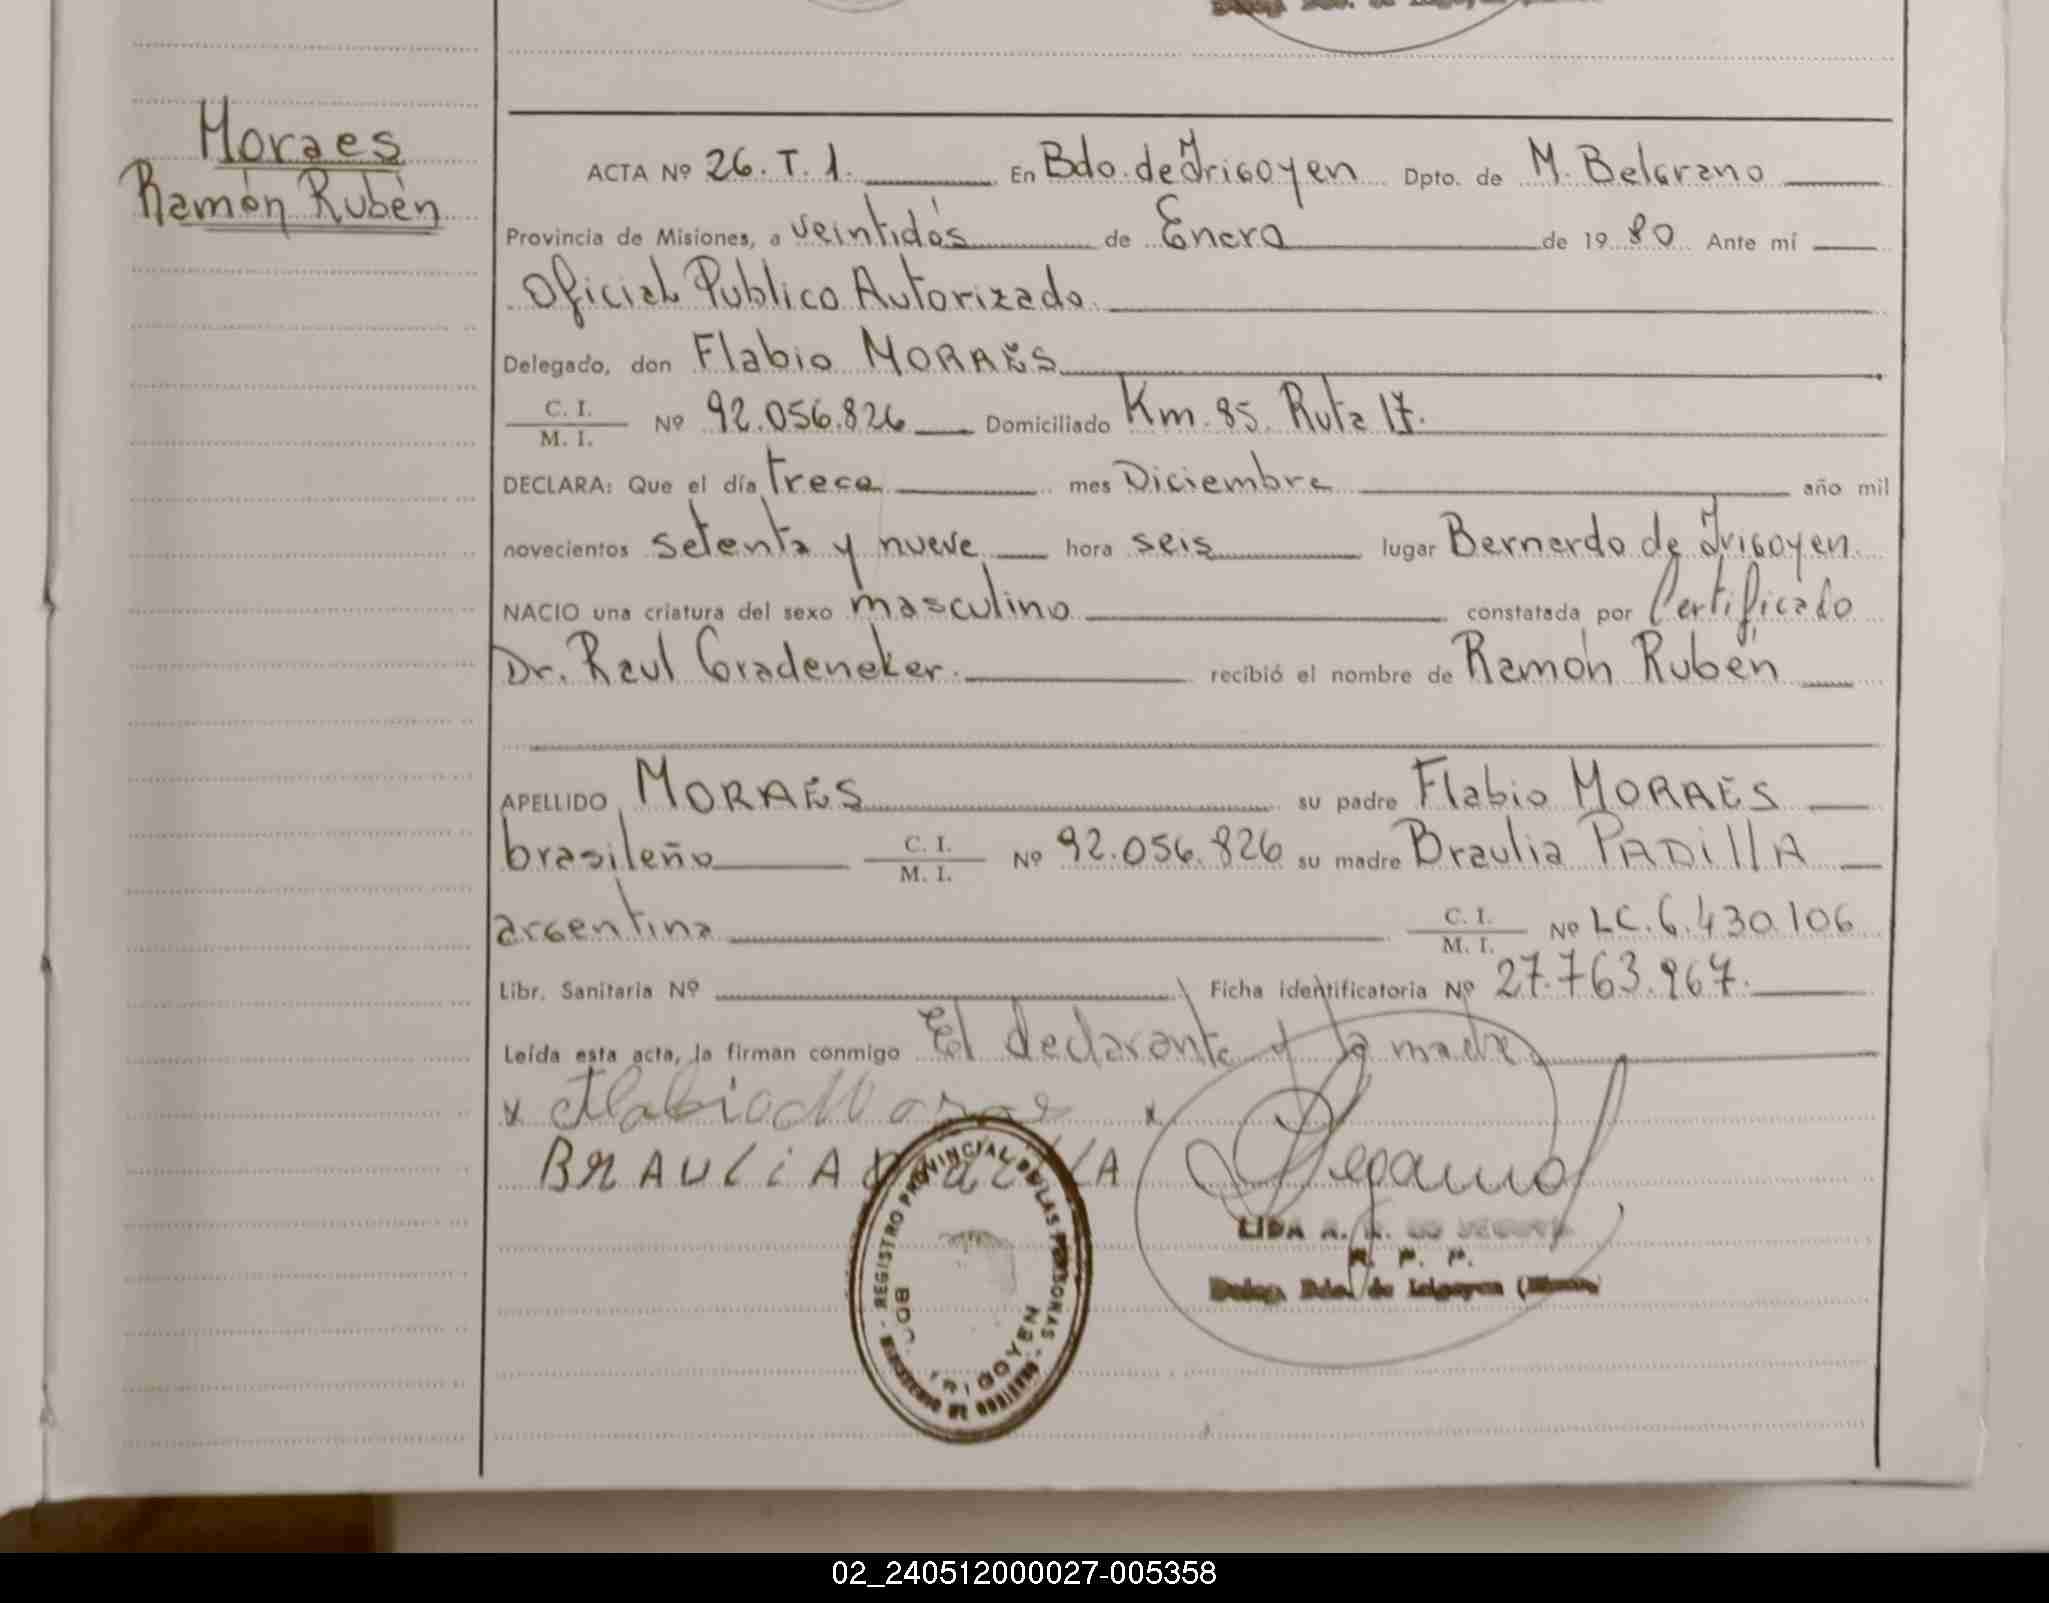 Moraes
Ramón Rubén
ACTA Nº 26. T. 1. En Bdo. de Irigoyen Dpto. de M. Belgrano
Provincia de Misiones, a veintidós de Enero de 19 80 Ante mí
Oficial Publico Autorizado
Delegado, don Flabio MORAES
C. I. / M. I. Nº 92.056.826 Domiciliado Km. 85. Ruta 17.
DECLARA: Que el día trece mes Diciembre año mil
novecientos setenta y nueve hora seis lugar Bernardo de Irigoyen
NACIO una criatura del sexo masculino constatada por Certificado
Dr. Raul Gradeneker. recibió el nombre de Ramón Rubén
APELLIDO MORAES su padre Flabio MORAES
brasileño C. I. / M. I. Nº 92.056.826 su madre Braulia PADillA
argentina C. I. / M. I. Nº LC. 6.430.106
Libr. Sanitaria Nº Ficha identificatoria Nº 27.763.967.
Leída esta acta, la firman conmigo El declarante y la madre
x Flabio Moraes x
BRAULiA
LIDA A.
R. P. P.
Deleg. Bdo. de Irigoyen
REGISTRO PROVINCIAL DE LAS PERSONAS - MINISTERIO DE GOBIERNO -
BDO. IRIGOYEN
02_240512000027-005358